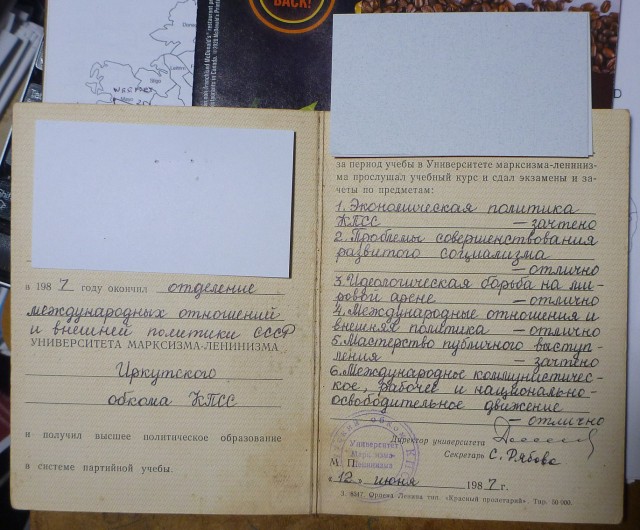 BACK!
в 1987 году окончил отделение
международных отношений
и внешней политики СССР
УНИВЕРСИТЕТА МАРКСИЗМА-ЛЕНИНИЗМА
Иркутского
обкома КПСС
и получил высшее политическое образование
в системе партийной учебы.
за период учебы в Университете марксизма-лениниз-
ма прослушал учебный курс и сдал экзамены и за-
четы по предметам:
1. Экономическая политика
КПСС — зачтено
2. Проблемы совершенствования
развитого социализма
— отлично
3. Идеологическая борьба на ми-
ровой арене — отлично
4. Международные отношения и
внешняя политика — отлично
5. Мастерство публичного выступ-
ления — зачтено
6. Международные коммунистичес-
кое, рабочее и национально-
освободительное движение
— отлично
Университет
Марксизма-
Ленинизма
Директор университета
Секретарь С. Рябова
М. П.
«12» июня 1987 г.
З. 6347. Ордена Ленина тип. «Красный пролетарий». Тир. 50 000.